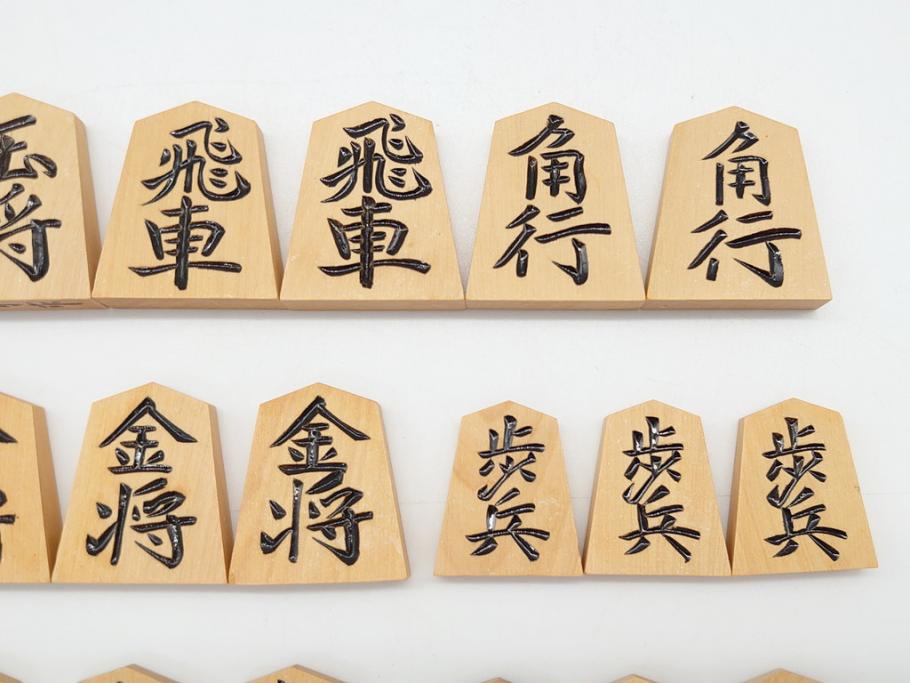 玉将
飛車
飛車
角行
角行
金将
金将
歩兵
歩兵
歩兵